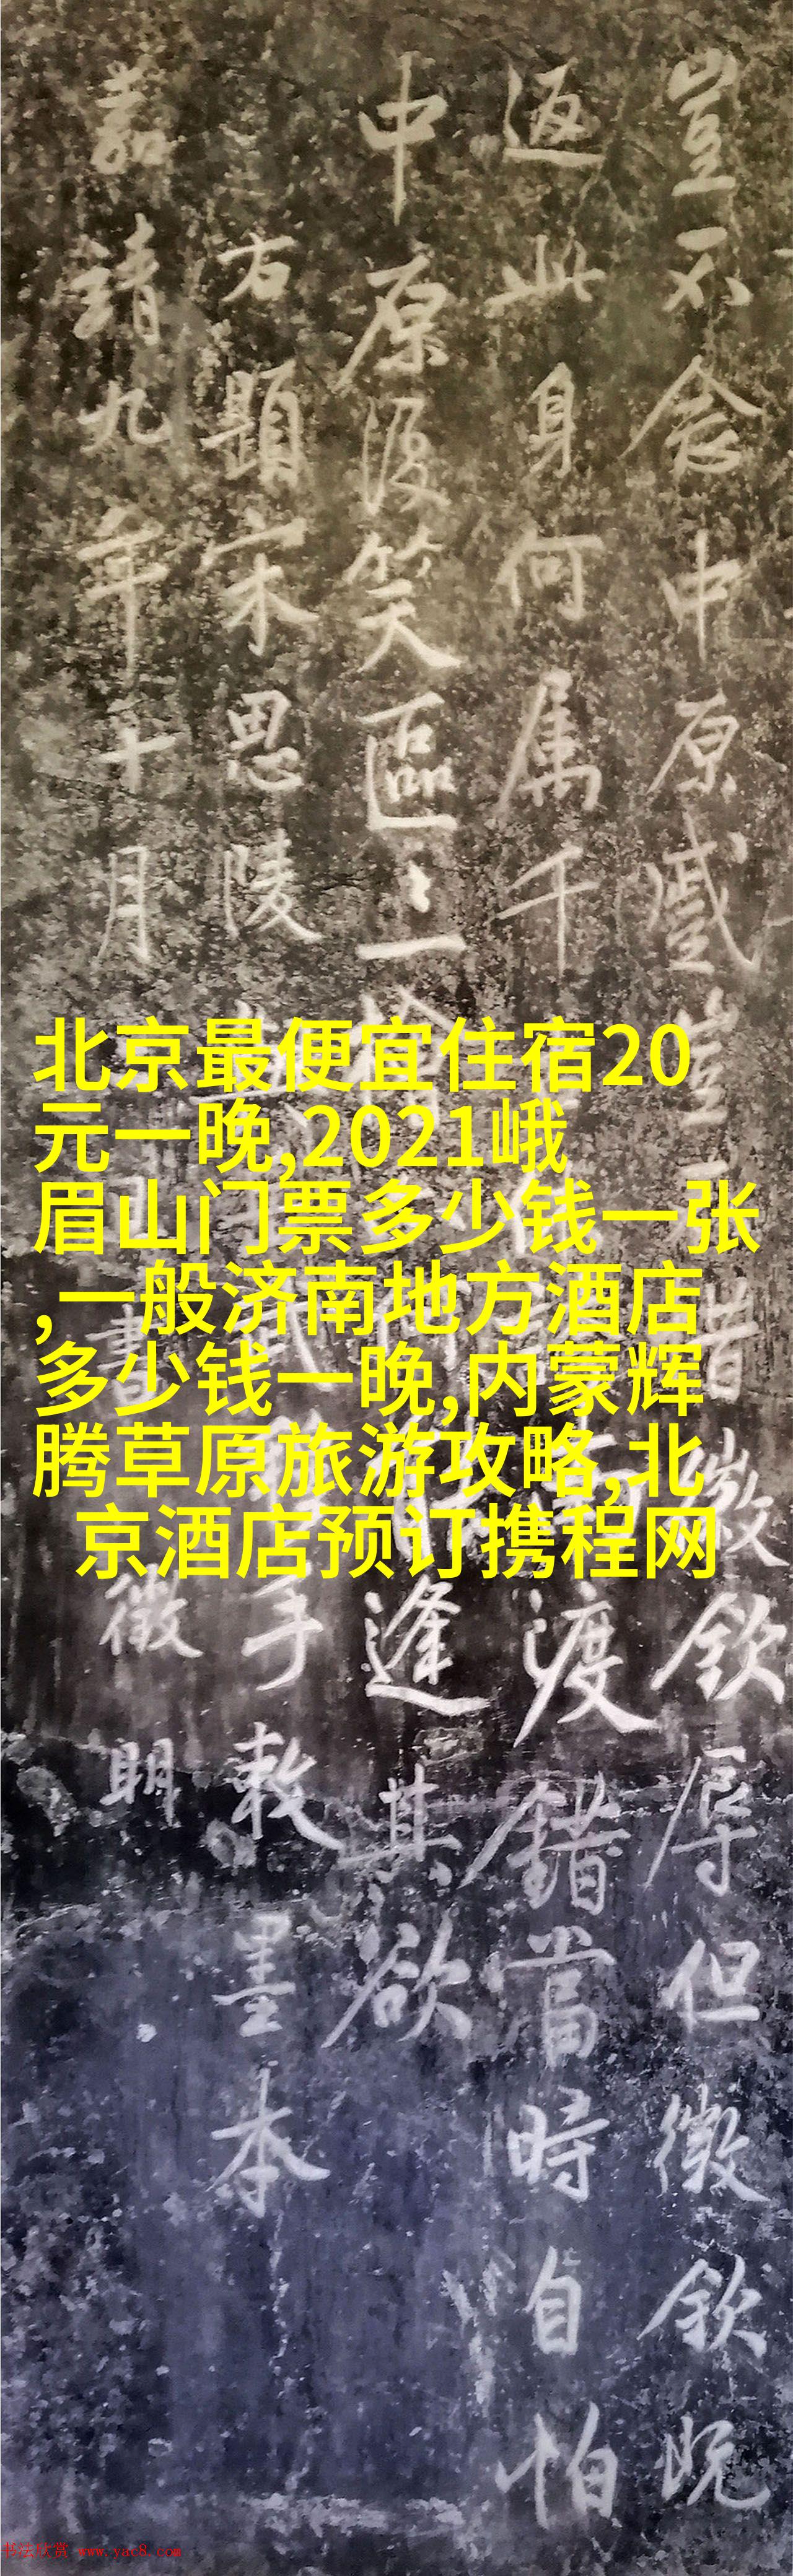 豈不念中原蹙豈惜徽欽辱但徽欽既
返此身何属千渡錯當時自怕
中原復笑區〻一檜逢其欲
右題宋思陵手敕墨本
嘉靖九年十月書徵明
北京最便宜住宿20
元一晚,2021峨
眉山门票多少钱一张
,一般济南地方酒店
多少钱一晚,内蒙辉
腾草原旅游攻略,北
京酒店预订携程网
书法欣赏 www.yac8.com